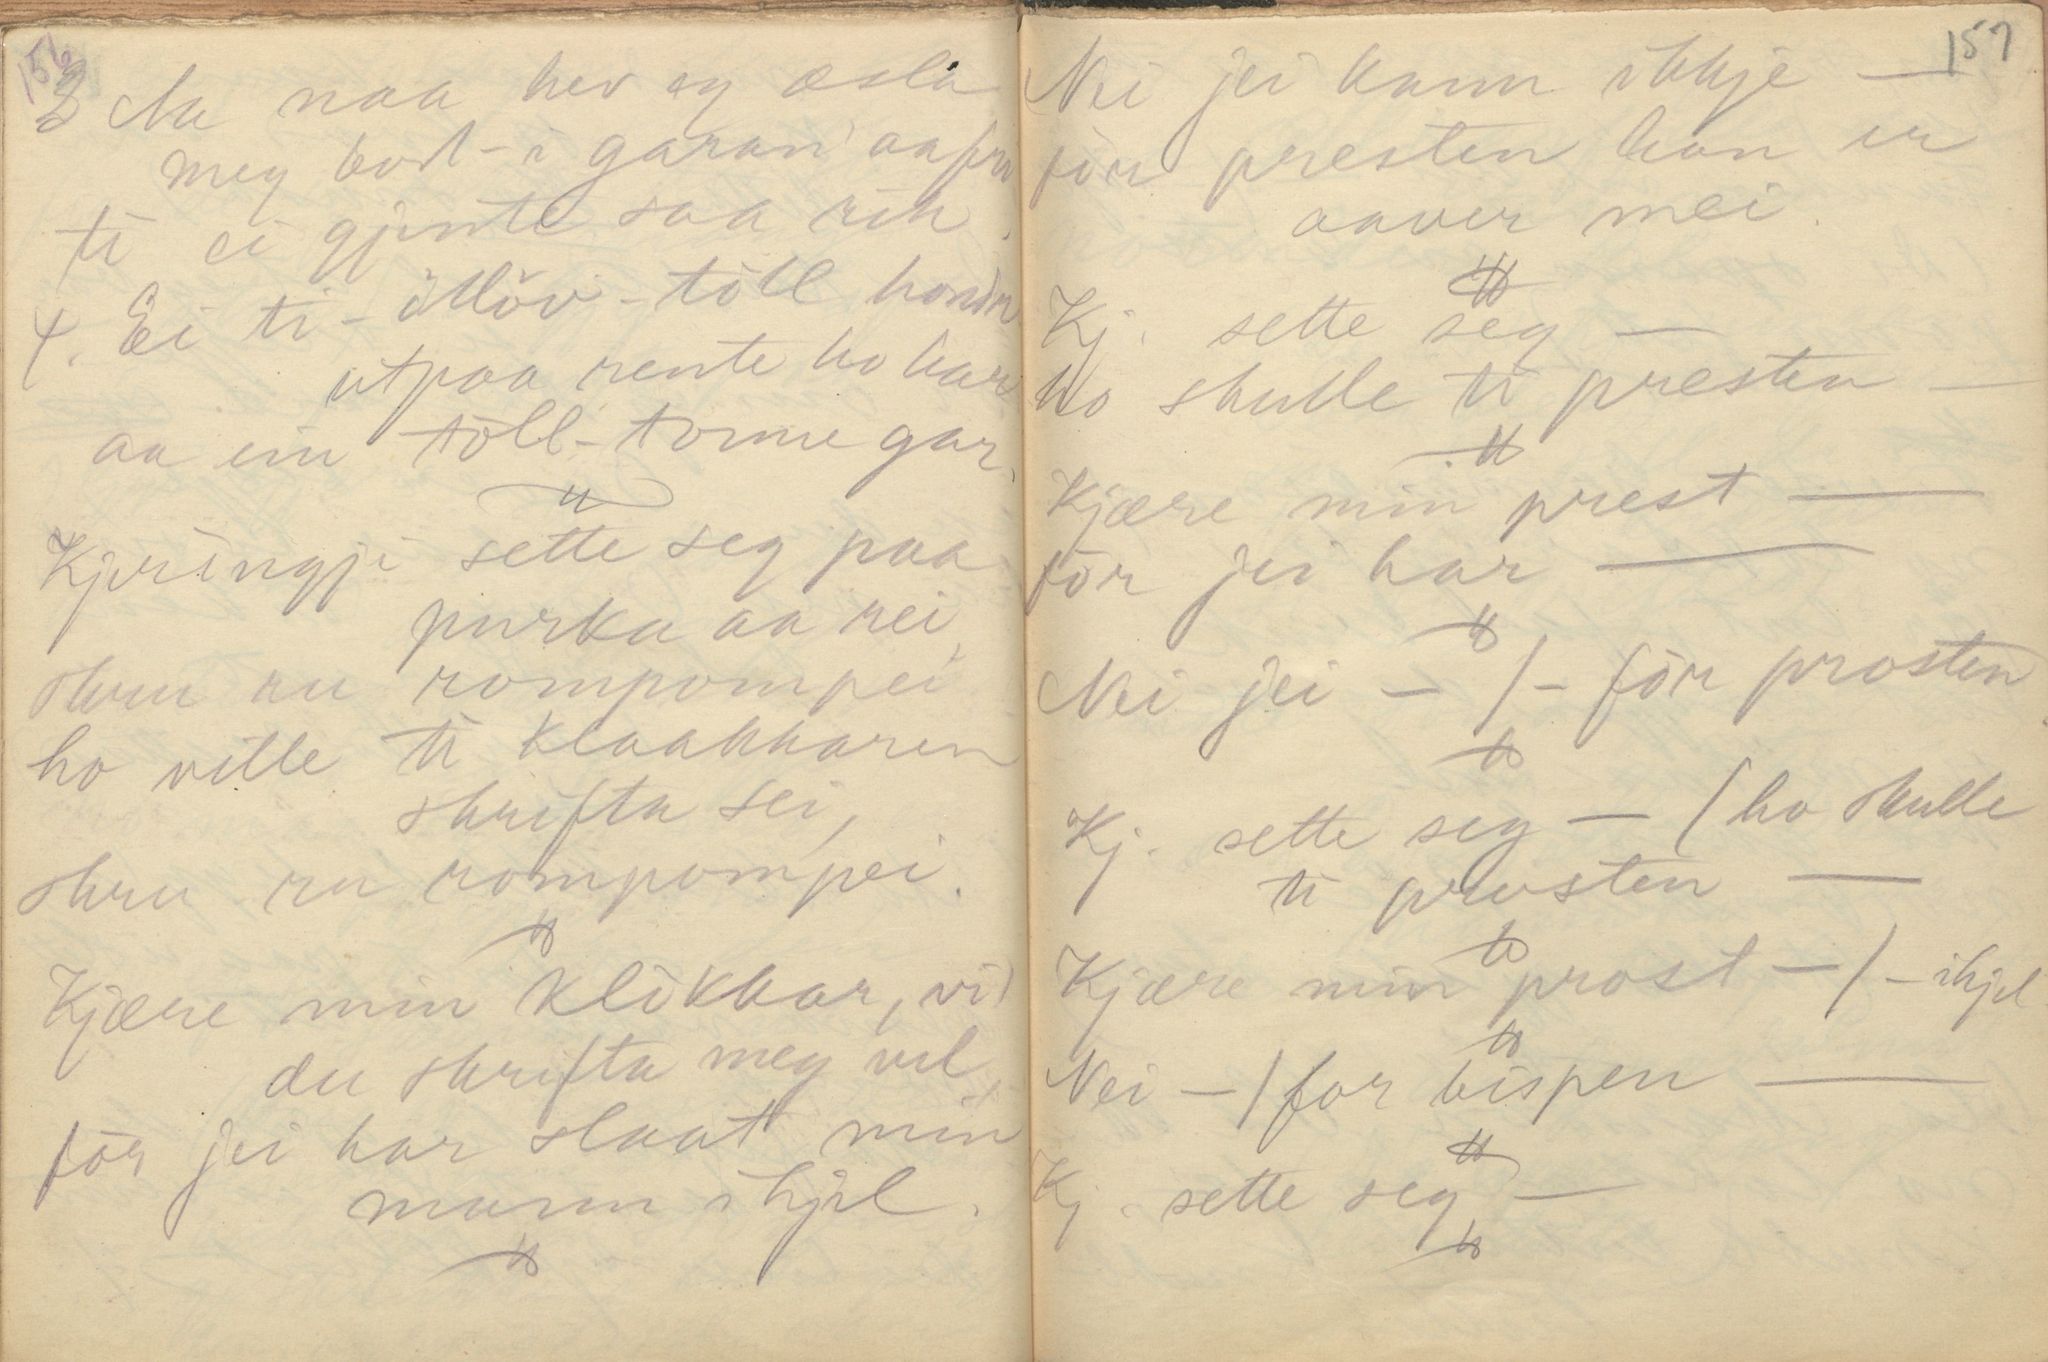 156
3 Aa naa hev eg æsla
meg bort i garan aafra
ti ei gjente saa rik.
4. Ei ti - ølløv - töll hondre
utpaa rente ho har
aa ein töll-tonne gar.
"
Kjeringji sette seg paa
purka aa rei,
skru ru rompompei
ho ville ti klaakkaren
skrifta sei,
skru ru rompompei.
"
Kjære min klökkar, vil
du skrifta meg vel,
för jei har slaat min
mann ihjel.
"
157
Nei jei kann ikkje —
för presten han er
aaver mei.
"
Kj. sette seg —
ho skulle ti presten —
"
Kjære min prest —
för jei har —
"
Nei jei — / — för prosten
"
Kj. sette seg — / ho skulle
ti prosten —
"
Kjære min prost — / — ihjel
"
Nei — / for bispen —
"
Kj. sette seg —
"